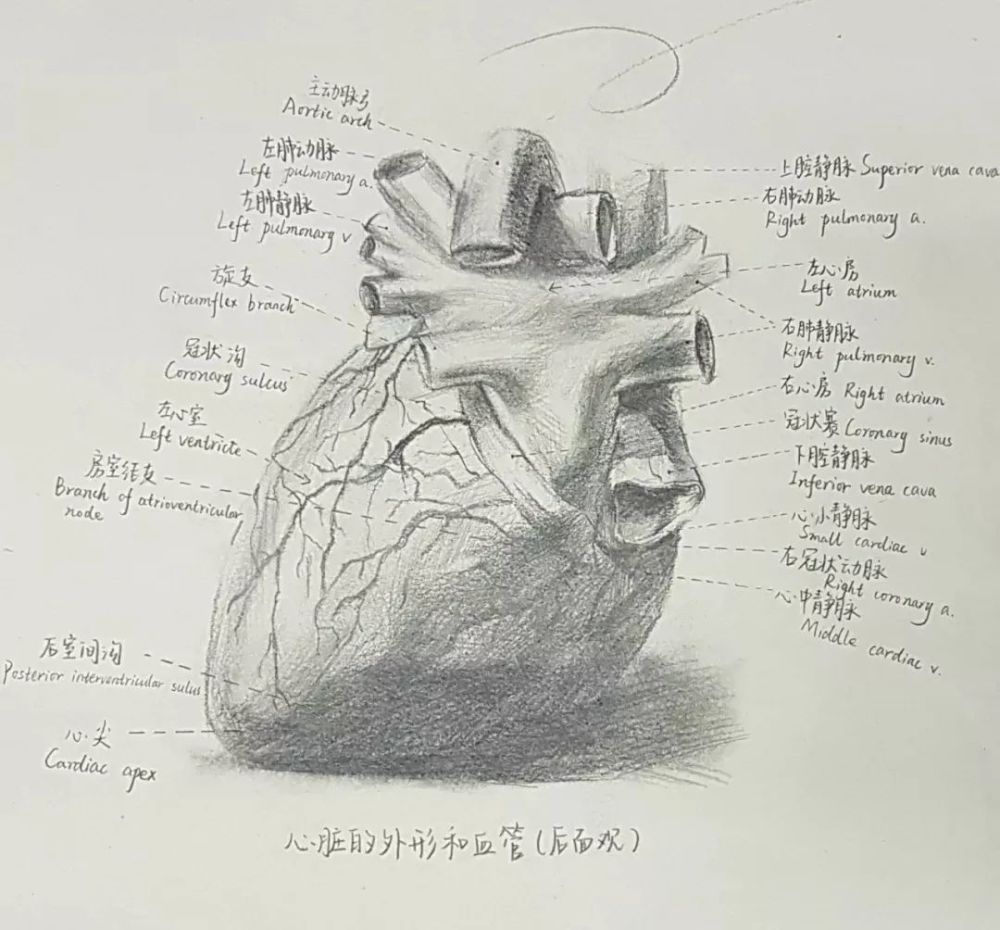 主动脉弓
Aortic arch
左肺动脉
Left pulmonary a.
左肺静脉
Left pulmonary v
旋支
Circumflex branch
冠状沟
Coronary sulcus
左心室
Left ventricte
房室结支
Branch of atrioventricular
node
后室间沟
Posterior interventricular sulus
心尖
Cardiac apex
上腔静脉 Superior vena cava
右肺动脉
Right pulmonary a.
左心房
Left atrium
右肺静脉
Right pulmonary v.
右心房 Right atrium
冠状窦 Coronary sinus
下腔静脉
Inferior vena cava
心小静脉
Small cardiac v
右冠状动脉
Right coronary a.
心中静脉
Middle cardiac v.
心脏的外形和血管(后面观)